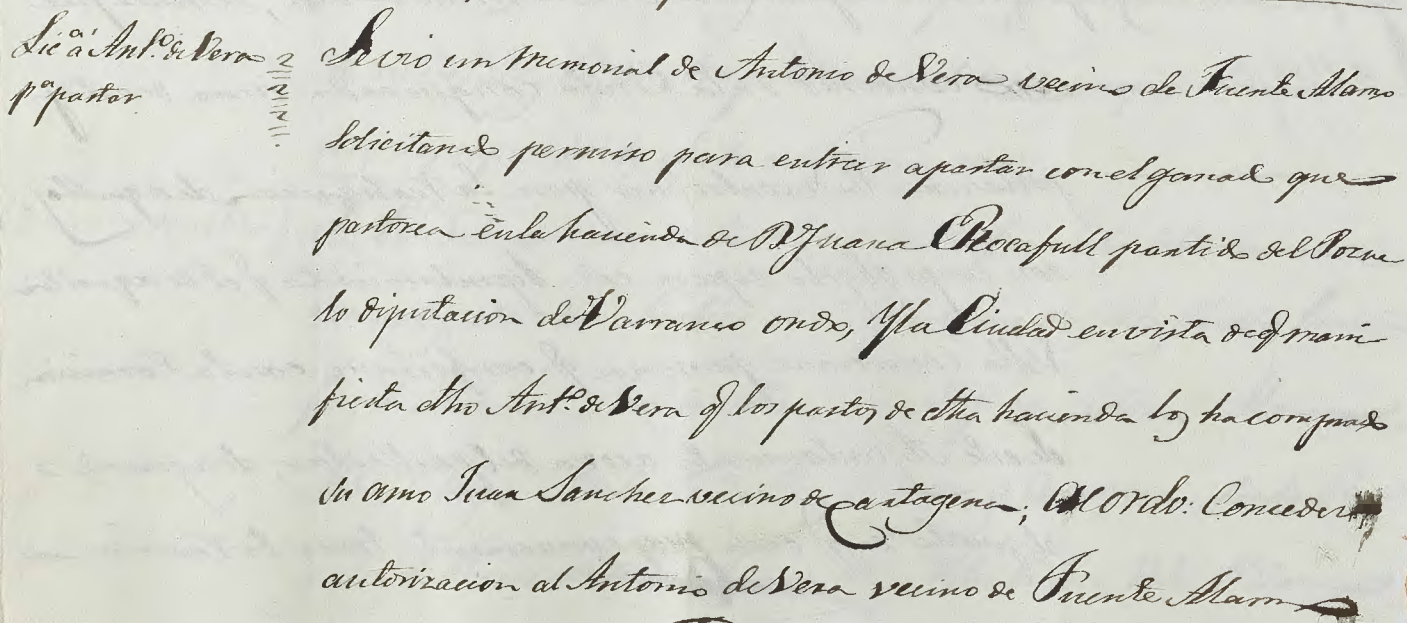 Lic.ª á Ant.º de Vera
p.ª pastar
Se vio un Memorial de Antonio de Vera vecino de Fuente Alamo
solicitando permiso para entrar apastar con el ganado que
pastorea en la hacienda de D.ª Juana Rocafull partido del Pozue
lo diputacion de Varranco ondo, Y la Ciudad en vista de q.e mani
fiesta dho Ant.º de Vera q.e los pastos de dha hacienda los ha comprado
su amo Juan Sanchez vecino de Cartagena; acordo: Conceder
autorizacion al Antonio de Vera vecino de Fuente Alamo